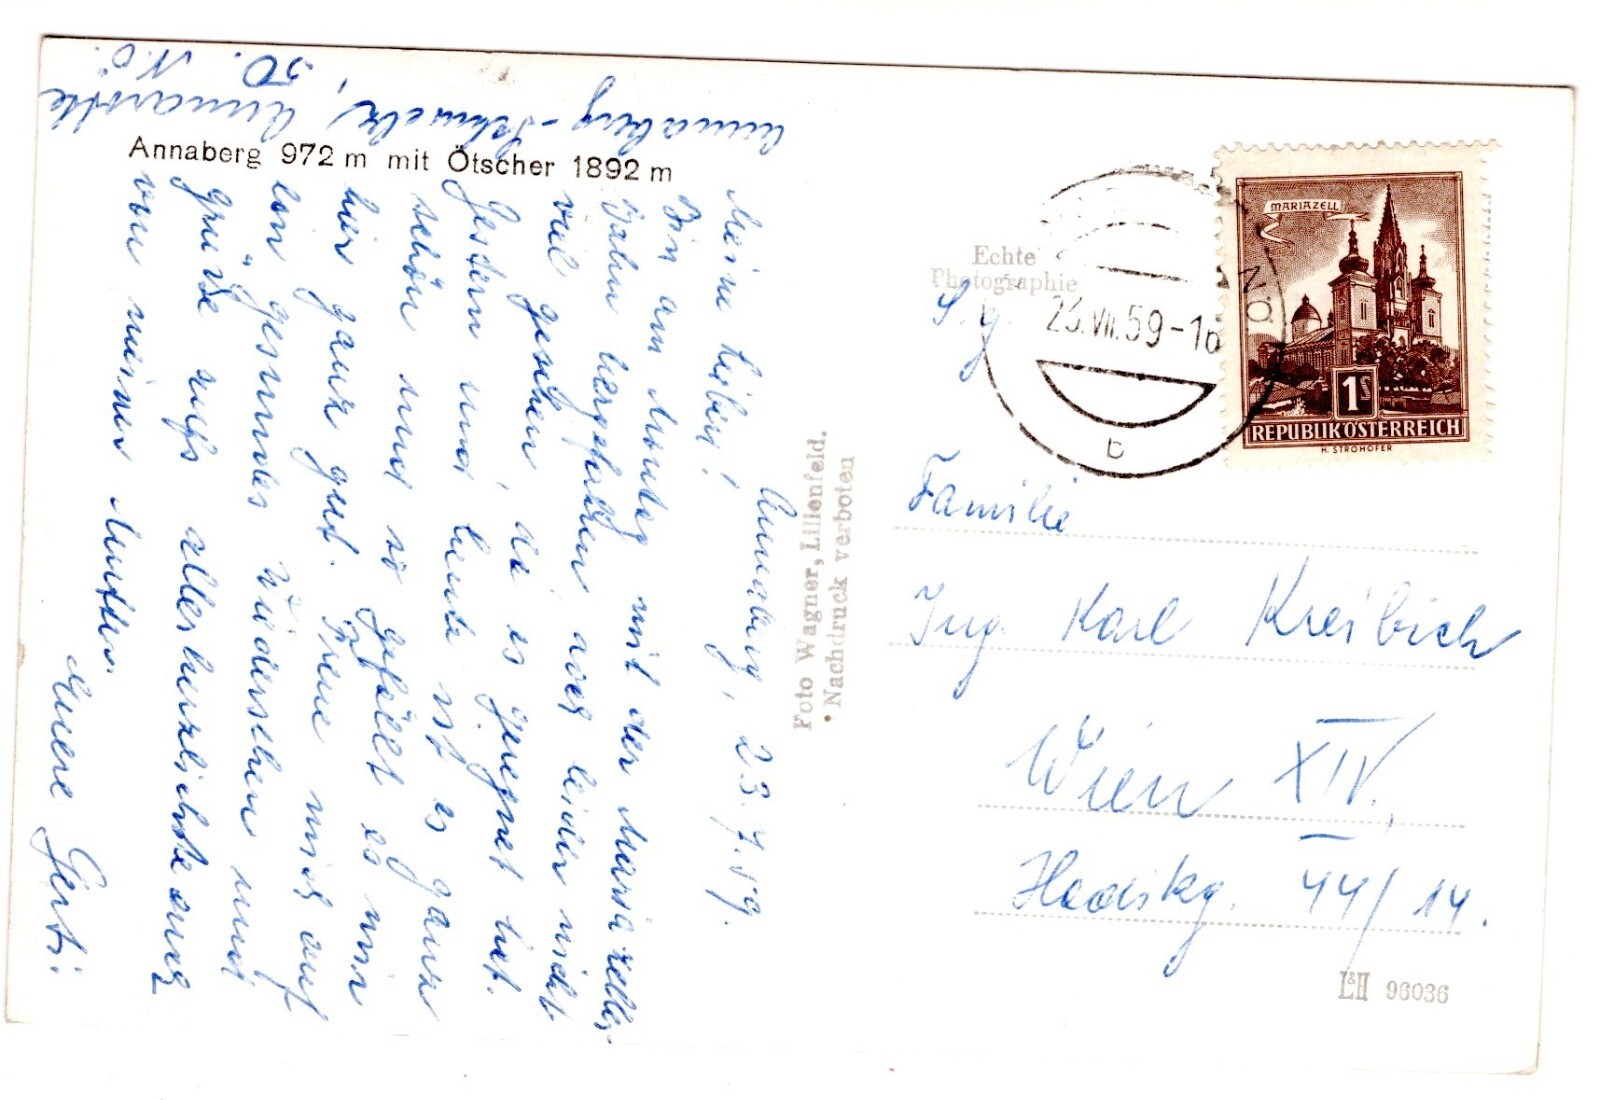 Annaberg 972 m mit Ötscher 1892 m
Annaberg, 23.7.59.
Meine Lieben!
Bin am Montag mit der Mariazeller-
bahn hergefahren aber leider nicht
viel gesehen, da es geregnet hat.
Gestern und heute ist es ganz
schön und so gefällt es mir
hier ganz gut. Freue mich auf
ein gesundes Wiedersehen und
grüße aufs allerherzlichste auch
von meiner Mutter.
Euere Gerti.
Annaberg- 50.
Annarotte N.Ö.
Foto Wagner, Lilienfeld.
Nachdruck verboten
Echte
Photographie
S.g.
23.VII.59-16
b
MARIAZELL
1S
REPUBLIK ÖSTERREICH
H. STROHOFER
Familie
Ing. Karl Kreibich
Wien XIV.,
Hadikg. 44/14.
L&H 96036